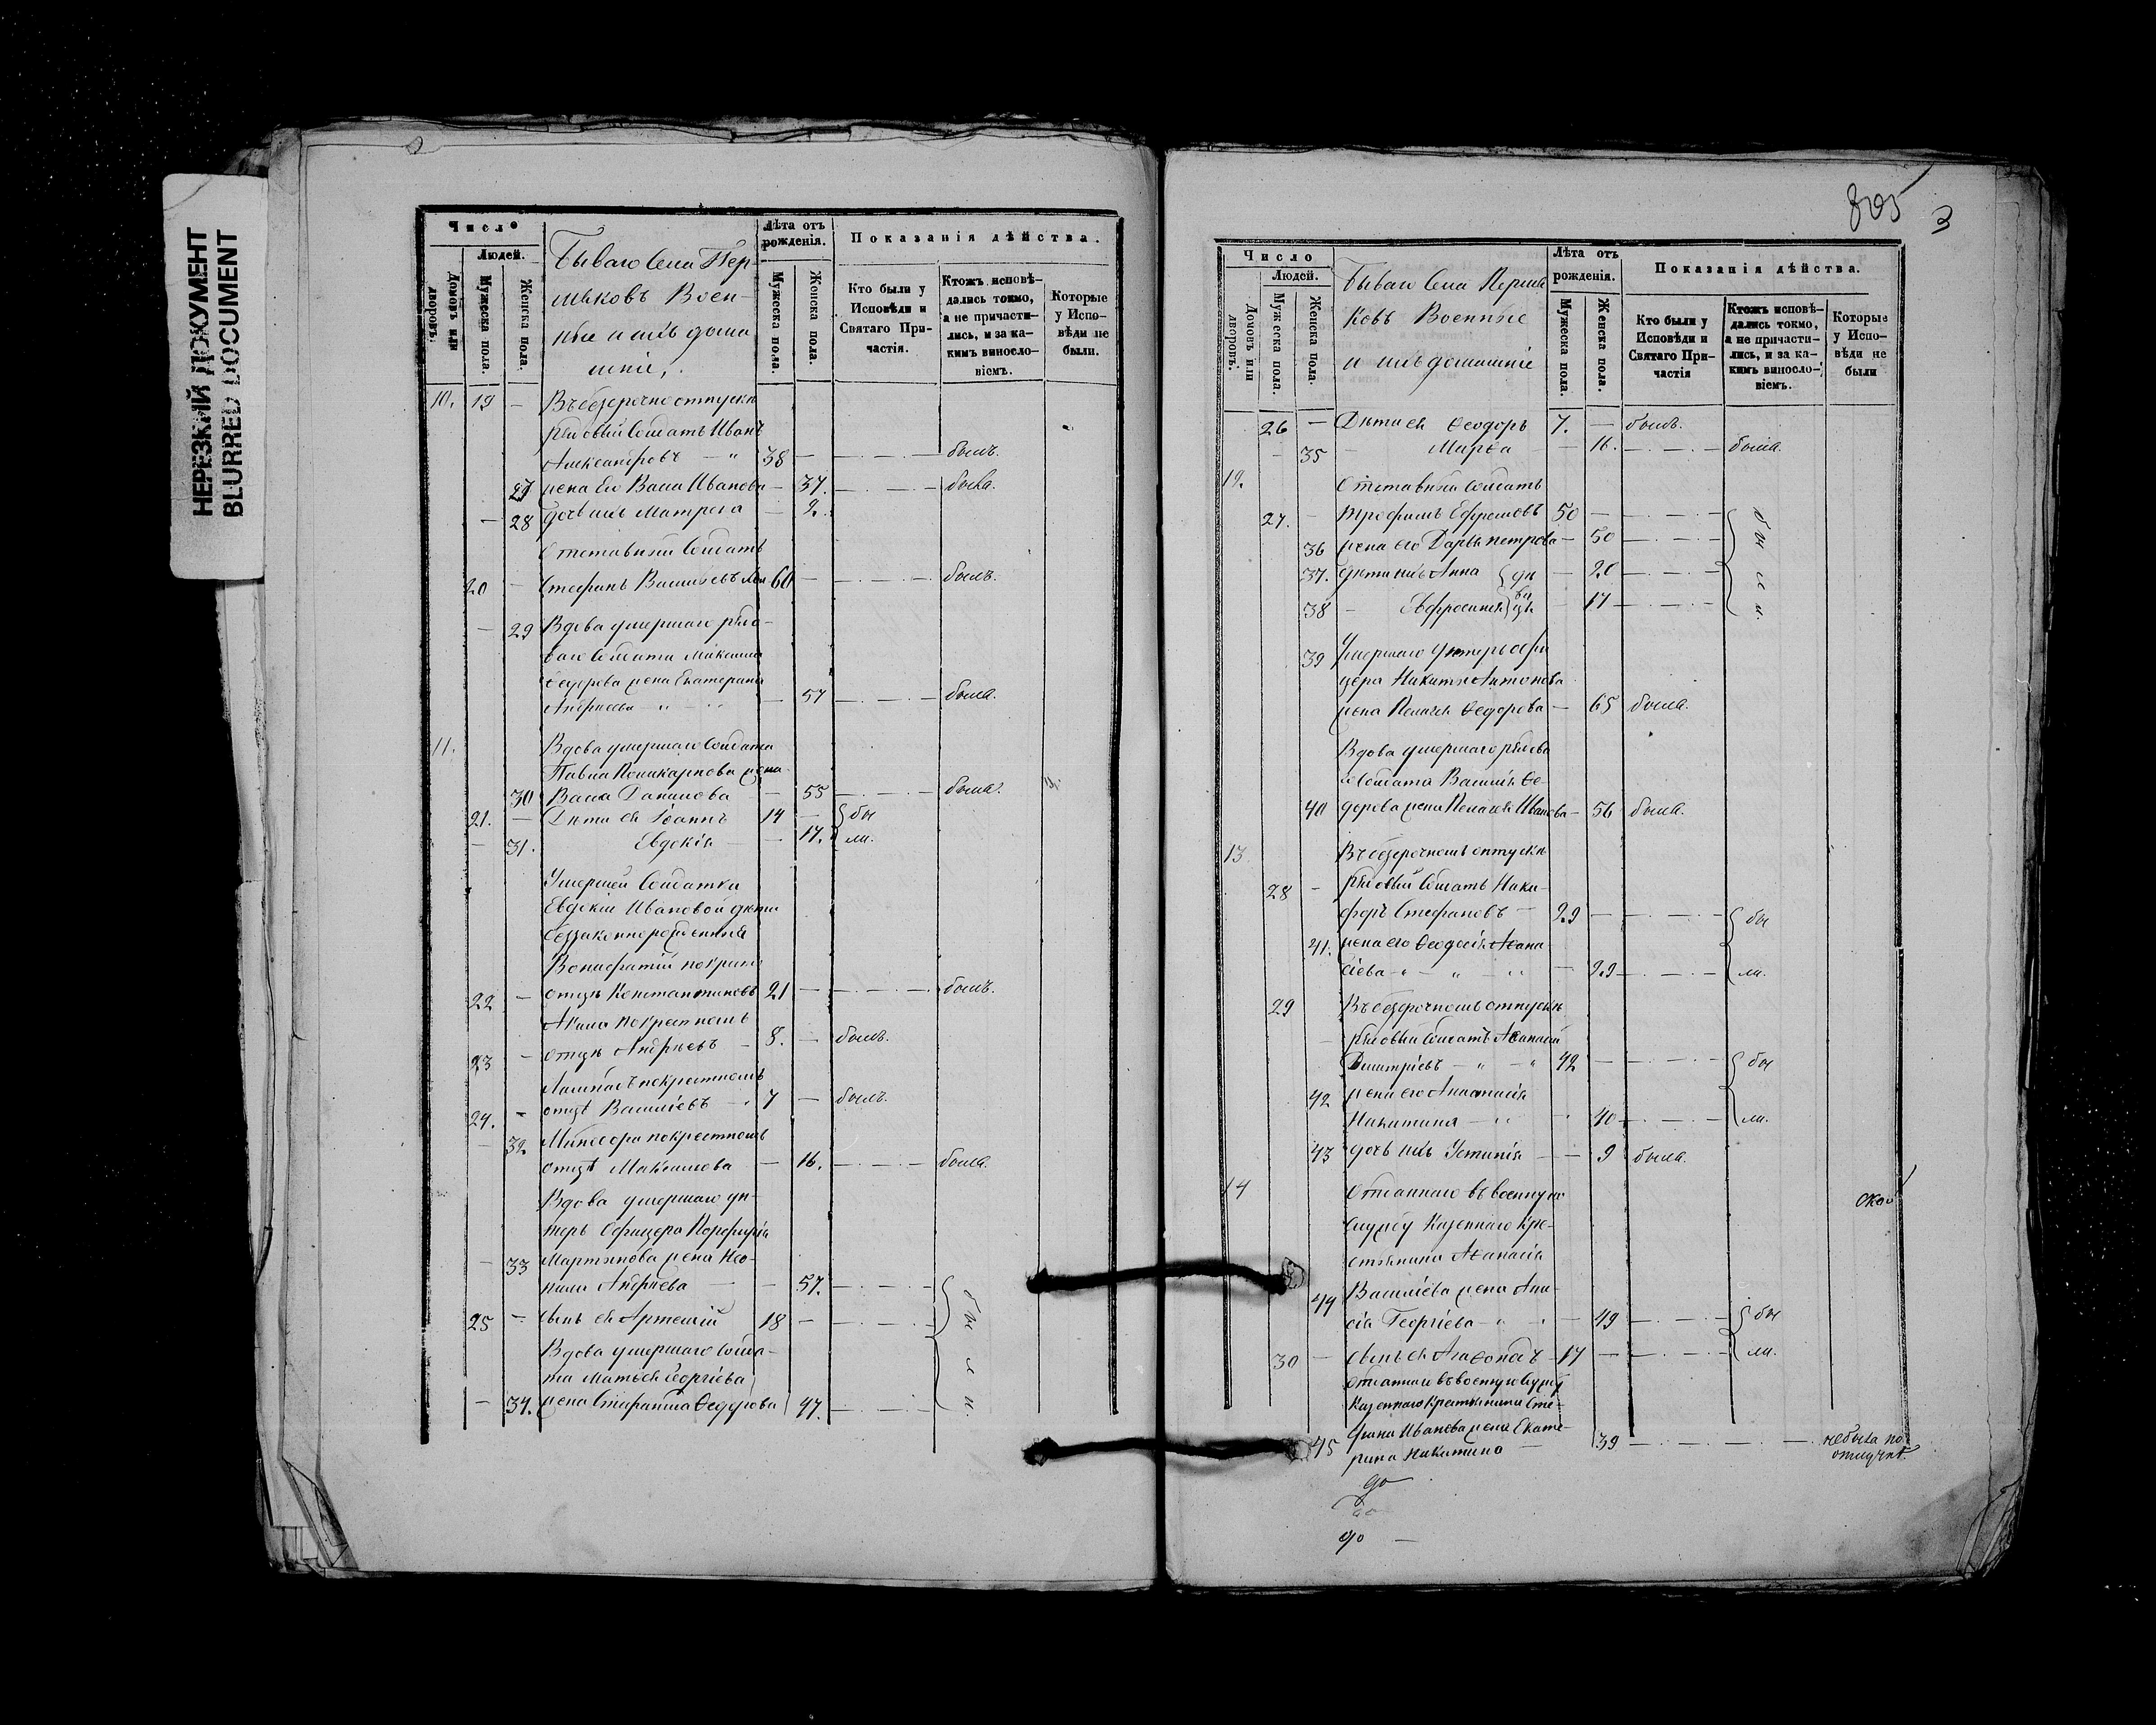 НЕРЕЗКИЙ ДОКУМЕНТ
BLURRED DOCUMENT
Число
Людей.
Домовъ или дворовъ.
Мужеска пола.
Женска пола.
Бываго Села Пер
шковъ Воен-
ные и ихъ дома
шніе,
Лѣта отъ рожденія.
Мужеска пола.
Женска пола.
Показанія дѣйства.
Кто были у Исповѣди и Святаго Причастія.
Ктожъ исповѣдались токмо, а не причастились, и за какимъ винословіемъ.
Которые у Исповѣди не были.
10. 19 — Въ безсрочно отпуску
рядовый Солдатъ Иванъ
Александровъ — " 38 — былъ.
27 жена Его Васса Иванова — 37. была.
— 28 дочь ихъ Матрона — 2.
Отставный Солдатъ
20 — Стефанъ Васильевъ 60 — былъ.
— 29 Вдова умершаго рядо-
ваго Солдата Максима
Ѳедорова жена Екатерина
Андреева — 57 была.
11. Вдова умершаго Солдата
Павла Поликарпова жена
30 Васса Данилова — 55 была.
21. — Дѣти ея Іоаннъ 14 — бы
— 31. Евдокія — 17. ли.
Умершей Солдатки
Евдокіи Ивановой дѣти
беззаконнорожденныя
Вонифатій по крестн
22 — отцѣ Константиновъ 21 — былъ.
Акила по крестномъ
23 — отцѣ Андреевъ — 8. — былъ.
по крестномъ
24. — отцѣ Васильевъ — 7 — былъ.
— 32 Минодора по крестномъ
отцѣ Максимова — 16. была.
Вдова умершаго ун-
теръ Офицера Порфирія
— 33 Мартынова жена Нео-
нила Андреева — 57.
25 — сынъ ея Артемій 18 — были.
Вдова умершаго Солда-
та Матвея Георгіева
— 34. жена Стефанида Ѳедорова 47.
805
3
Число
Людей.
Домовъ или дворовъ.
Мужеска пола.
Женска пола.
Бываго Села Перши
ковъ Военные
и ихъ домашніе
Лѣта отъ рожденія.
Мужеска пола.
Женска пола.
Показанія дѣйства.
Кто были у Исповѣди и Святаго Причастія
Ктожъ исповѣдались токмо, а не причастились, и за какимъ винословіемъ.
Которые у Исповѣди не были
26 — Дѣти ея Ѳеодоръ 7. — былъ.
— 35 — Марѳа — 16. была.
12. Отставный Солдатъ
27. — Трофимъ Ефремовъ 50 —
36 жена его Дарья Петрова — 50
37. дѣти ихъ Анна дѣ — 20 были.
38 — Евфросинія вицы — 17
39 Умершаго Унтеръ Офи
цера Никиты Антонова
жена Пелагея Ѳедорова — 65 была.
Вдова умершаго рядова
го Солдата Василія Ѳе-
40 дорова жена Пелагея Иванова — 56 была.
13 Въ безсрочномъ отпуску
28 — рядовый Солдатъ Ники-
форъ Стефановъ — 29 — бы
41. жена его Ѳеодосія Аѳана
сіева — " — " — 29 ли.
29 Въ безсрочномъ отпуску
рядовый Солдатъ Аѳанасій
Димитріевъ — " — 42 — бы
42 жена его Анастасія
Никитина — 40 ли.
43 дочь ихъ Устинія — 9 была.
14 Отданнаго въ военную
службу Казеннаго Кре-
стьянина Аѳанасія
44 Васильева жена Ани-
сія Георгіева — 49 бы
30 — сынъ ея Агаѳонъ — 17 — ли.
Отданнаго въ военную Служб
Казеннаго Крестьянина Сте-
45 фана Иванова жена Екате-
рина Никитина — 39 не была по
отлучкѣ.
до
до
до —